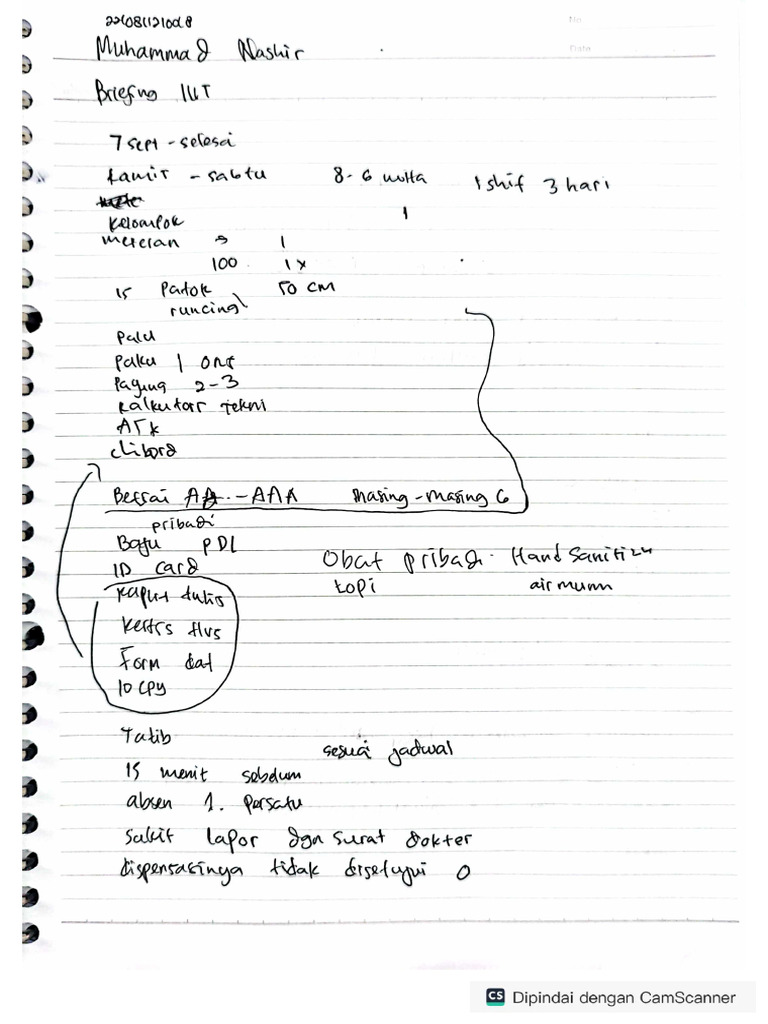 No
Date
Muhammad Nashir
Briefing IUT
7 sept - selesai
kamis - sabtu 8 - 6 1 shif 3 hari
1
kelompok
meteran 1
100 1x
15 Patok 50 cm
runcing
palu
paku 1 ons
Payung 2-3
kalkutor tekni
ATK
clibord
Masing-masing 6
pribadi
Baju PDL
ID card Obat pribadi. Hand Sanitizer
topi air
tulis
Form dat
10 cpy
Tatib
sesuai jadwal
15 menit sebelum
absen 1. Persatu
sakit lapor dgn surat dokter
dispensasinya tidak disetujui 0
CS Dipindai dengan CamScanner